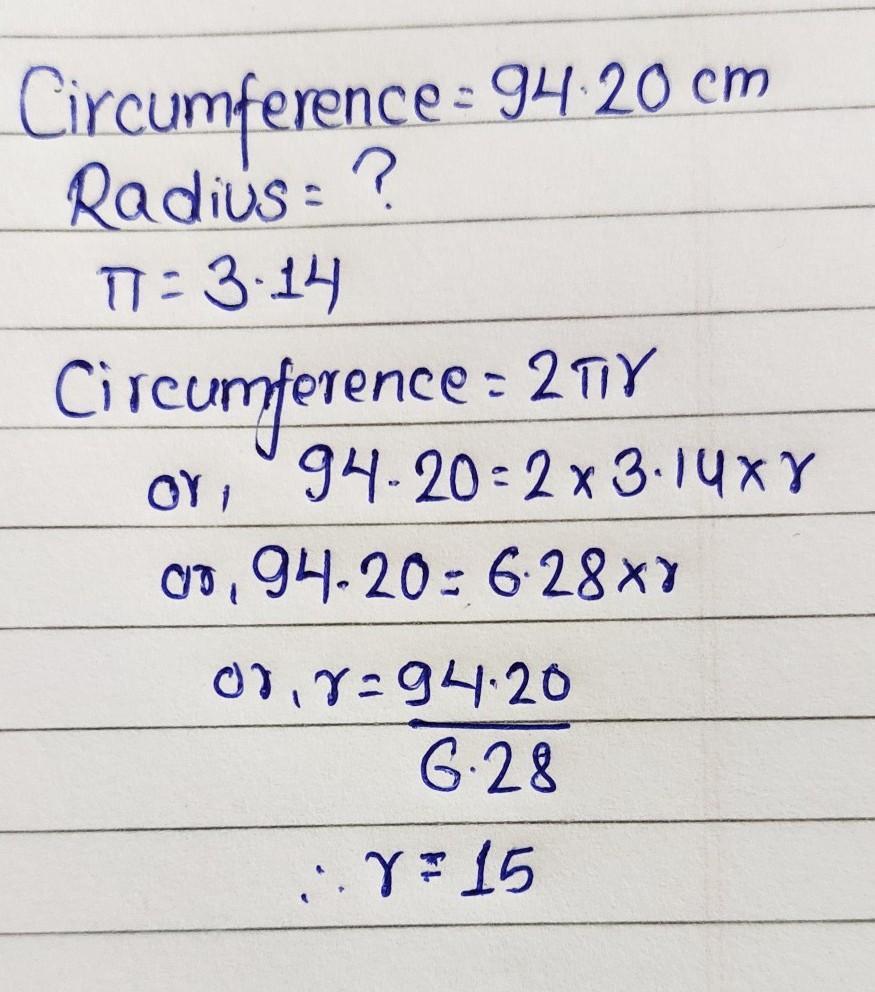 Circumference = 94.20 cm
Radius = ?
π = 3.14
Circumference = 2πr
or, 94.20 = 2 x 3.14 x r
or, 94.20 = 6.28 x r
or, r = 94.20
6.28
∴ r = 15